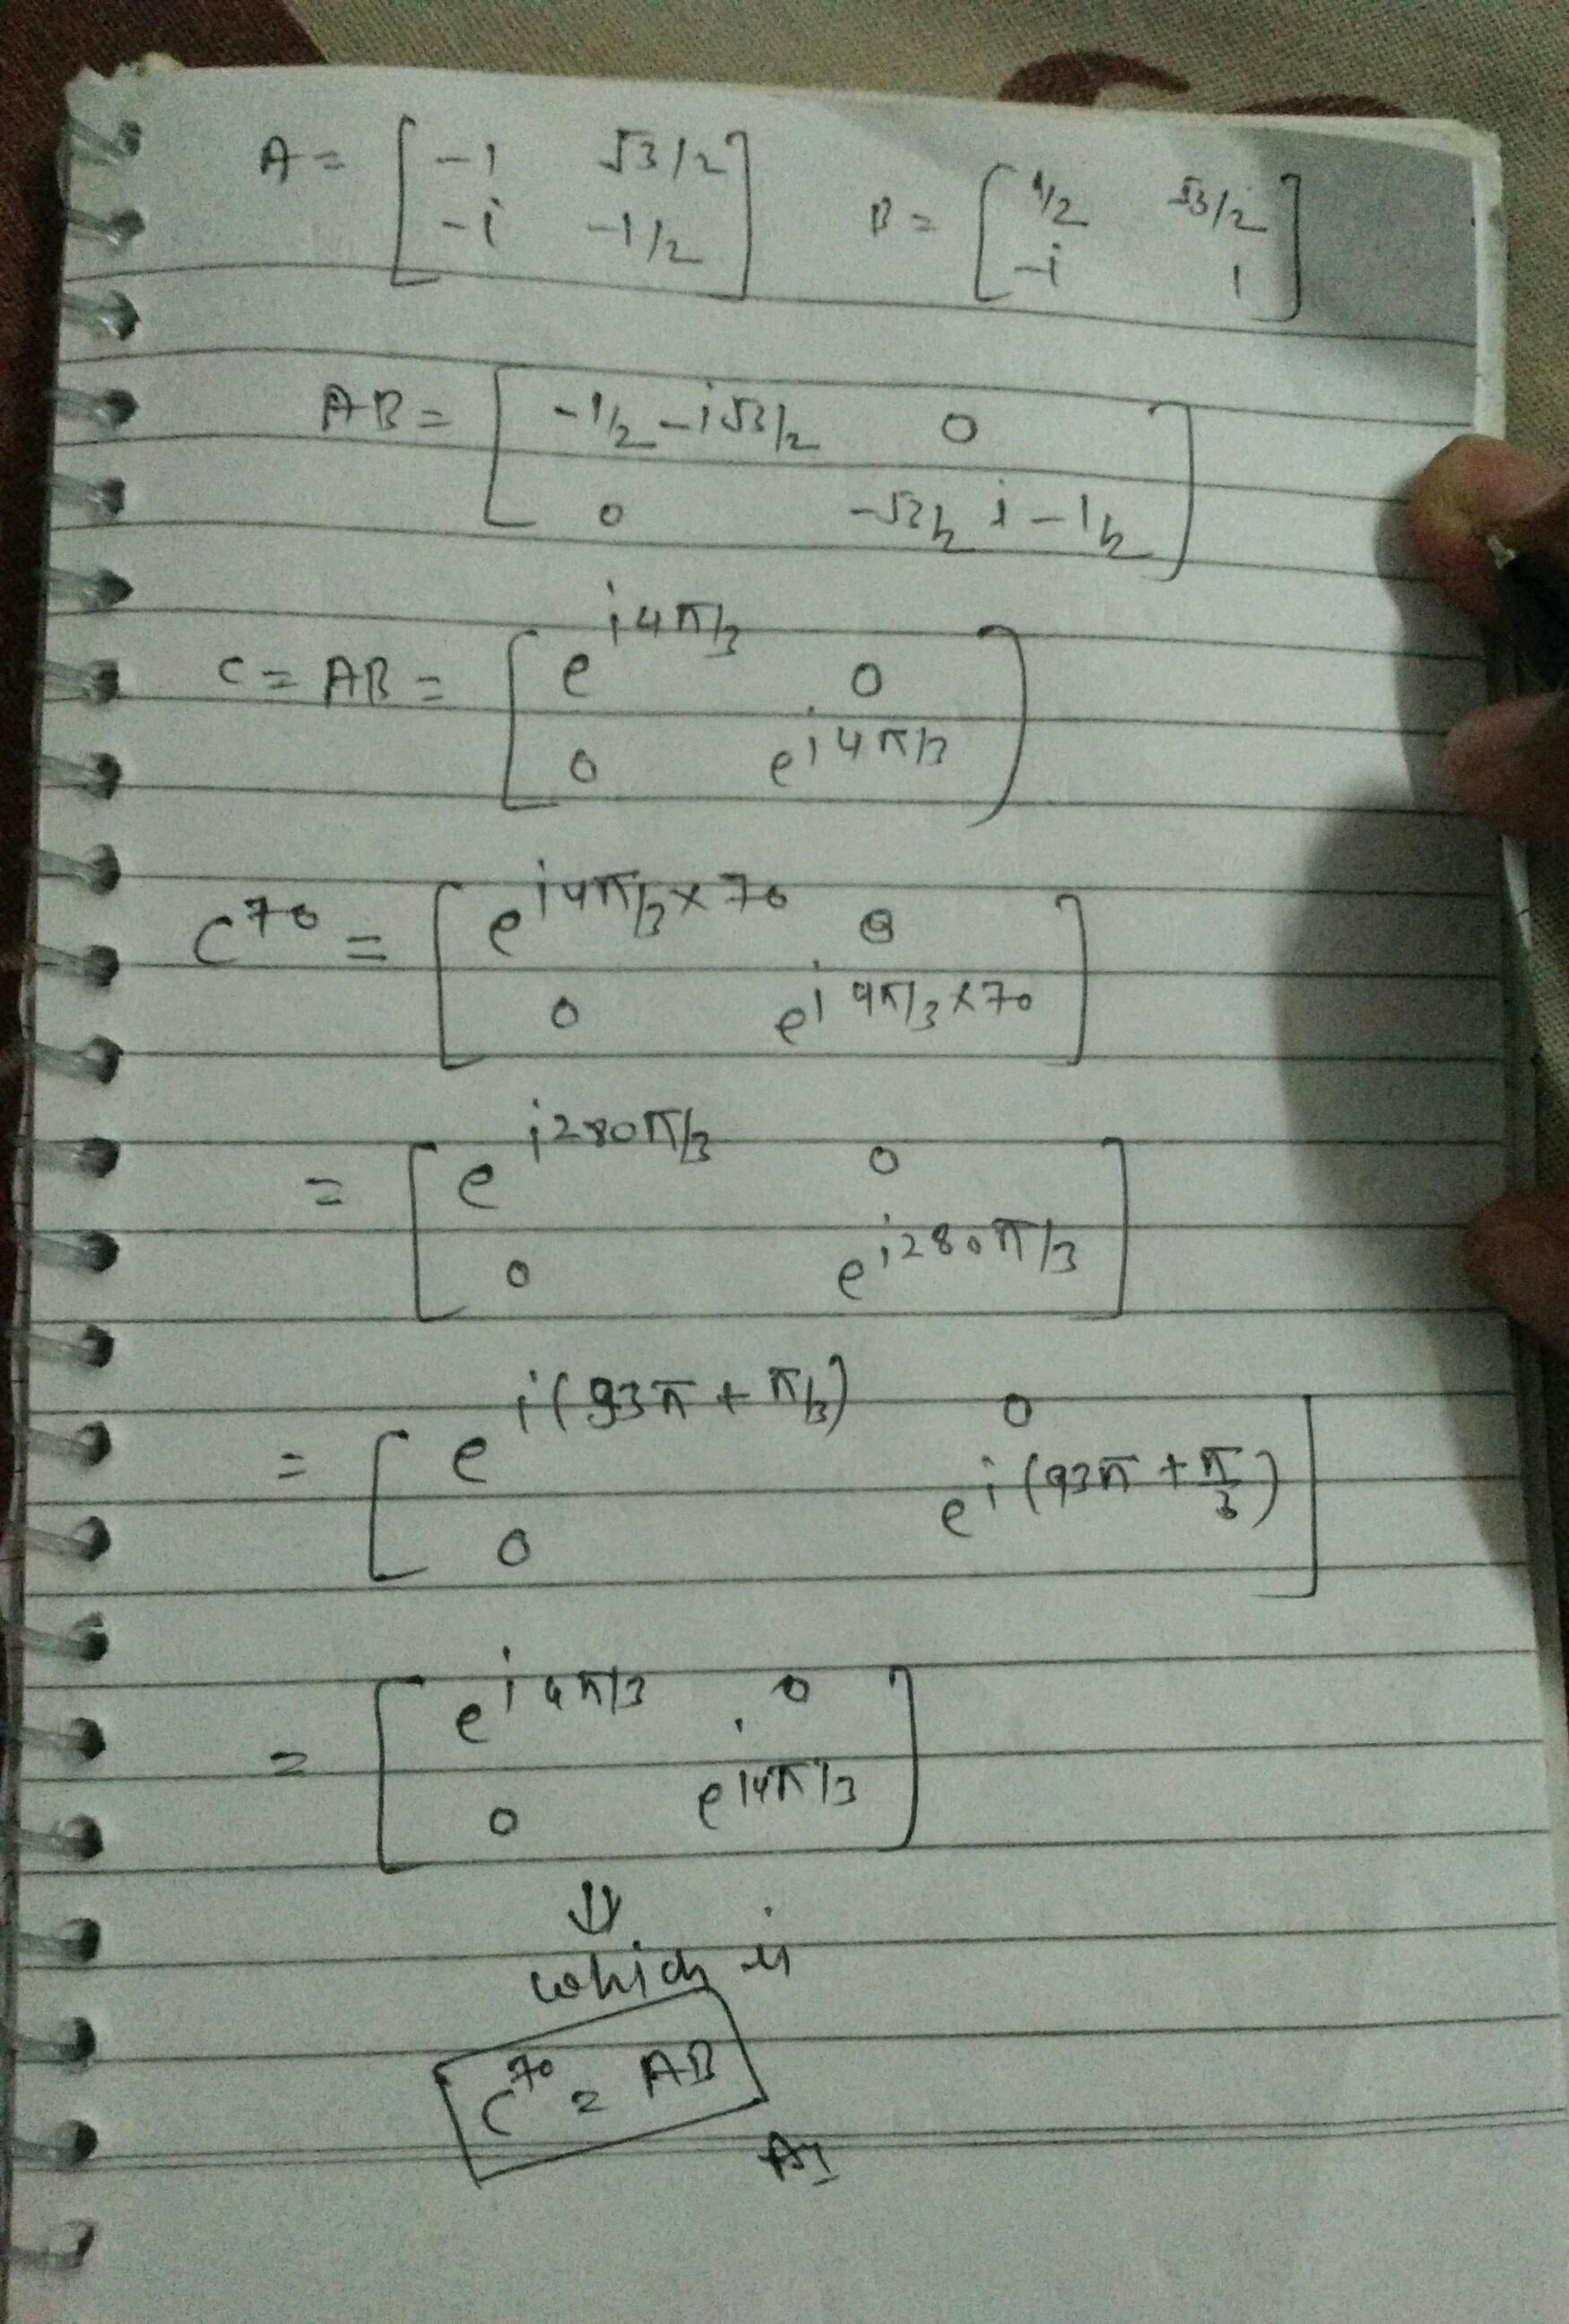 A = [ -1 √3/2 ] B = [ 1/2 √3/2 ]
[ -i -1/2 ] [ -i 1 ]
AB = [ -1/2 - i√3/2 0 ]
[ 0 -√3/2 i - 1/2 ]
C = AB = [ e^{i4π/3} 0 ]
[ 0 e^{i4π/3} ]
C^{70} = [ e^{i4π/3×70} 0 ]
[ 0 e^{i4π/3×70} ]
= [ e^{i280π/3} 0 ]
[ 0 e^{i280π/3} ]
= [ e^{i(93π + π/3)} 0 ]
[ 0 e^{i(93π + π/3)} ]
= [ e^{i4π/3} 0 ]
[ 0 e^{i4π/3} ]
⇓
which is
C^{70} = AB